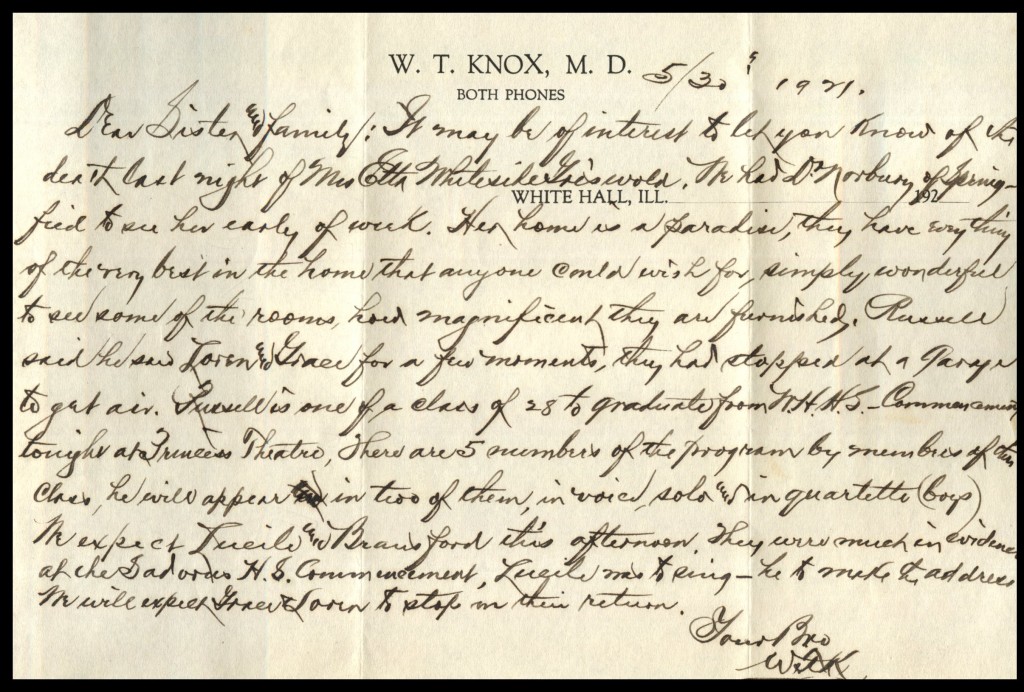 W. T. KNOX, M. D.
BOTH PHONES
5/30 1921.
Dear Sister and family: It may be of interest to let you know of the
death last night of Mrs Etta Whiteside Griswold. We had Dr Norbury of Spring-
WHITE HALL, ILL. 192
field to see her early of week. Her home is a paradise, they have everything
of the very best in the home that anyone could wish for, simply wonderful
to see some of the rooms, how magnificent they are furnished. Russell
said he saw Loren and Grace for a few moments, they had stopped at a Garage
to get air. Russell is one of a class of 28 to graduate from W.H.H.S. - Commencement
tonight at Princess Theatre, There are 5 numbers of the program by members of the
class, he will appear in two of them, in voice, solo and in quartette (boys)
We expect Lucile and Bransford this afternoon. They were much in evidence
at the Sadorus H.S. Commencement, Lucile was to sing - he to make the address
We will expect Grace & Loren to stop on their return.
Your Bro
WTK